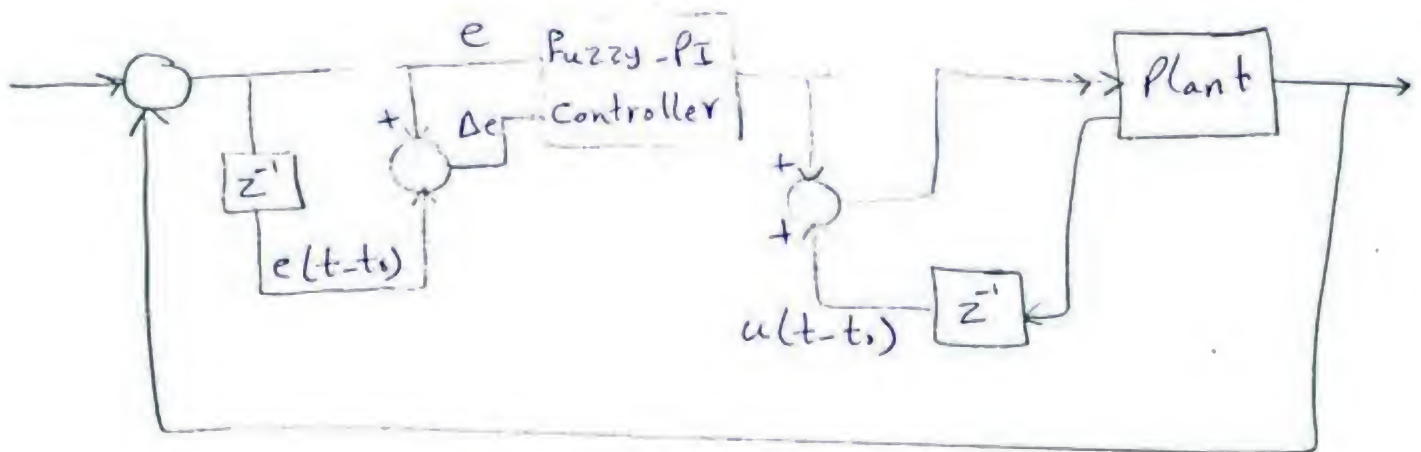 e
Fuzzy-PI
Controller
Plant
+
Δe
z⁻¹
e(t-ts)
+
+
z⁻¹
u(t-ts)